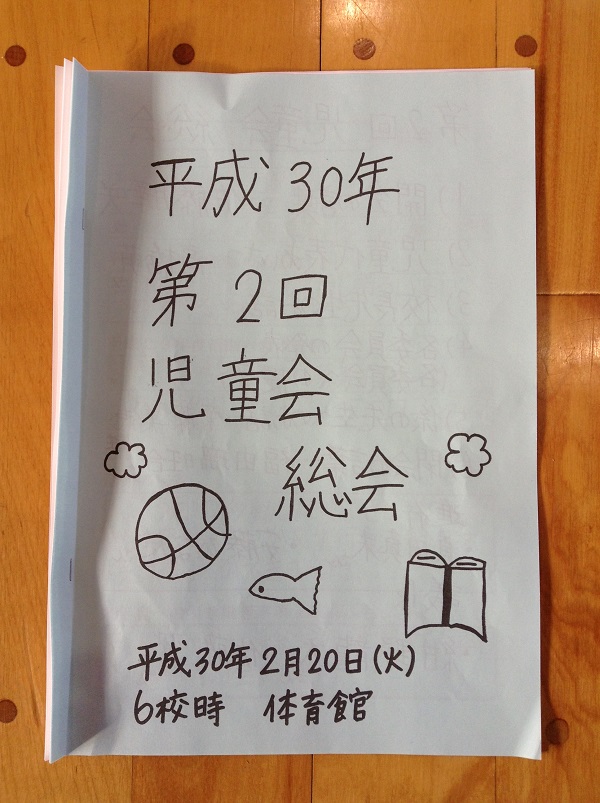 平成30年
第2回
児童会
総会
平成30年2月20日(火)
6校時 体育館